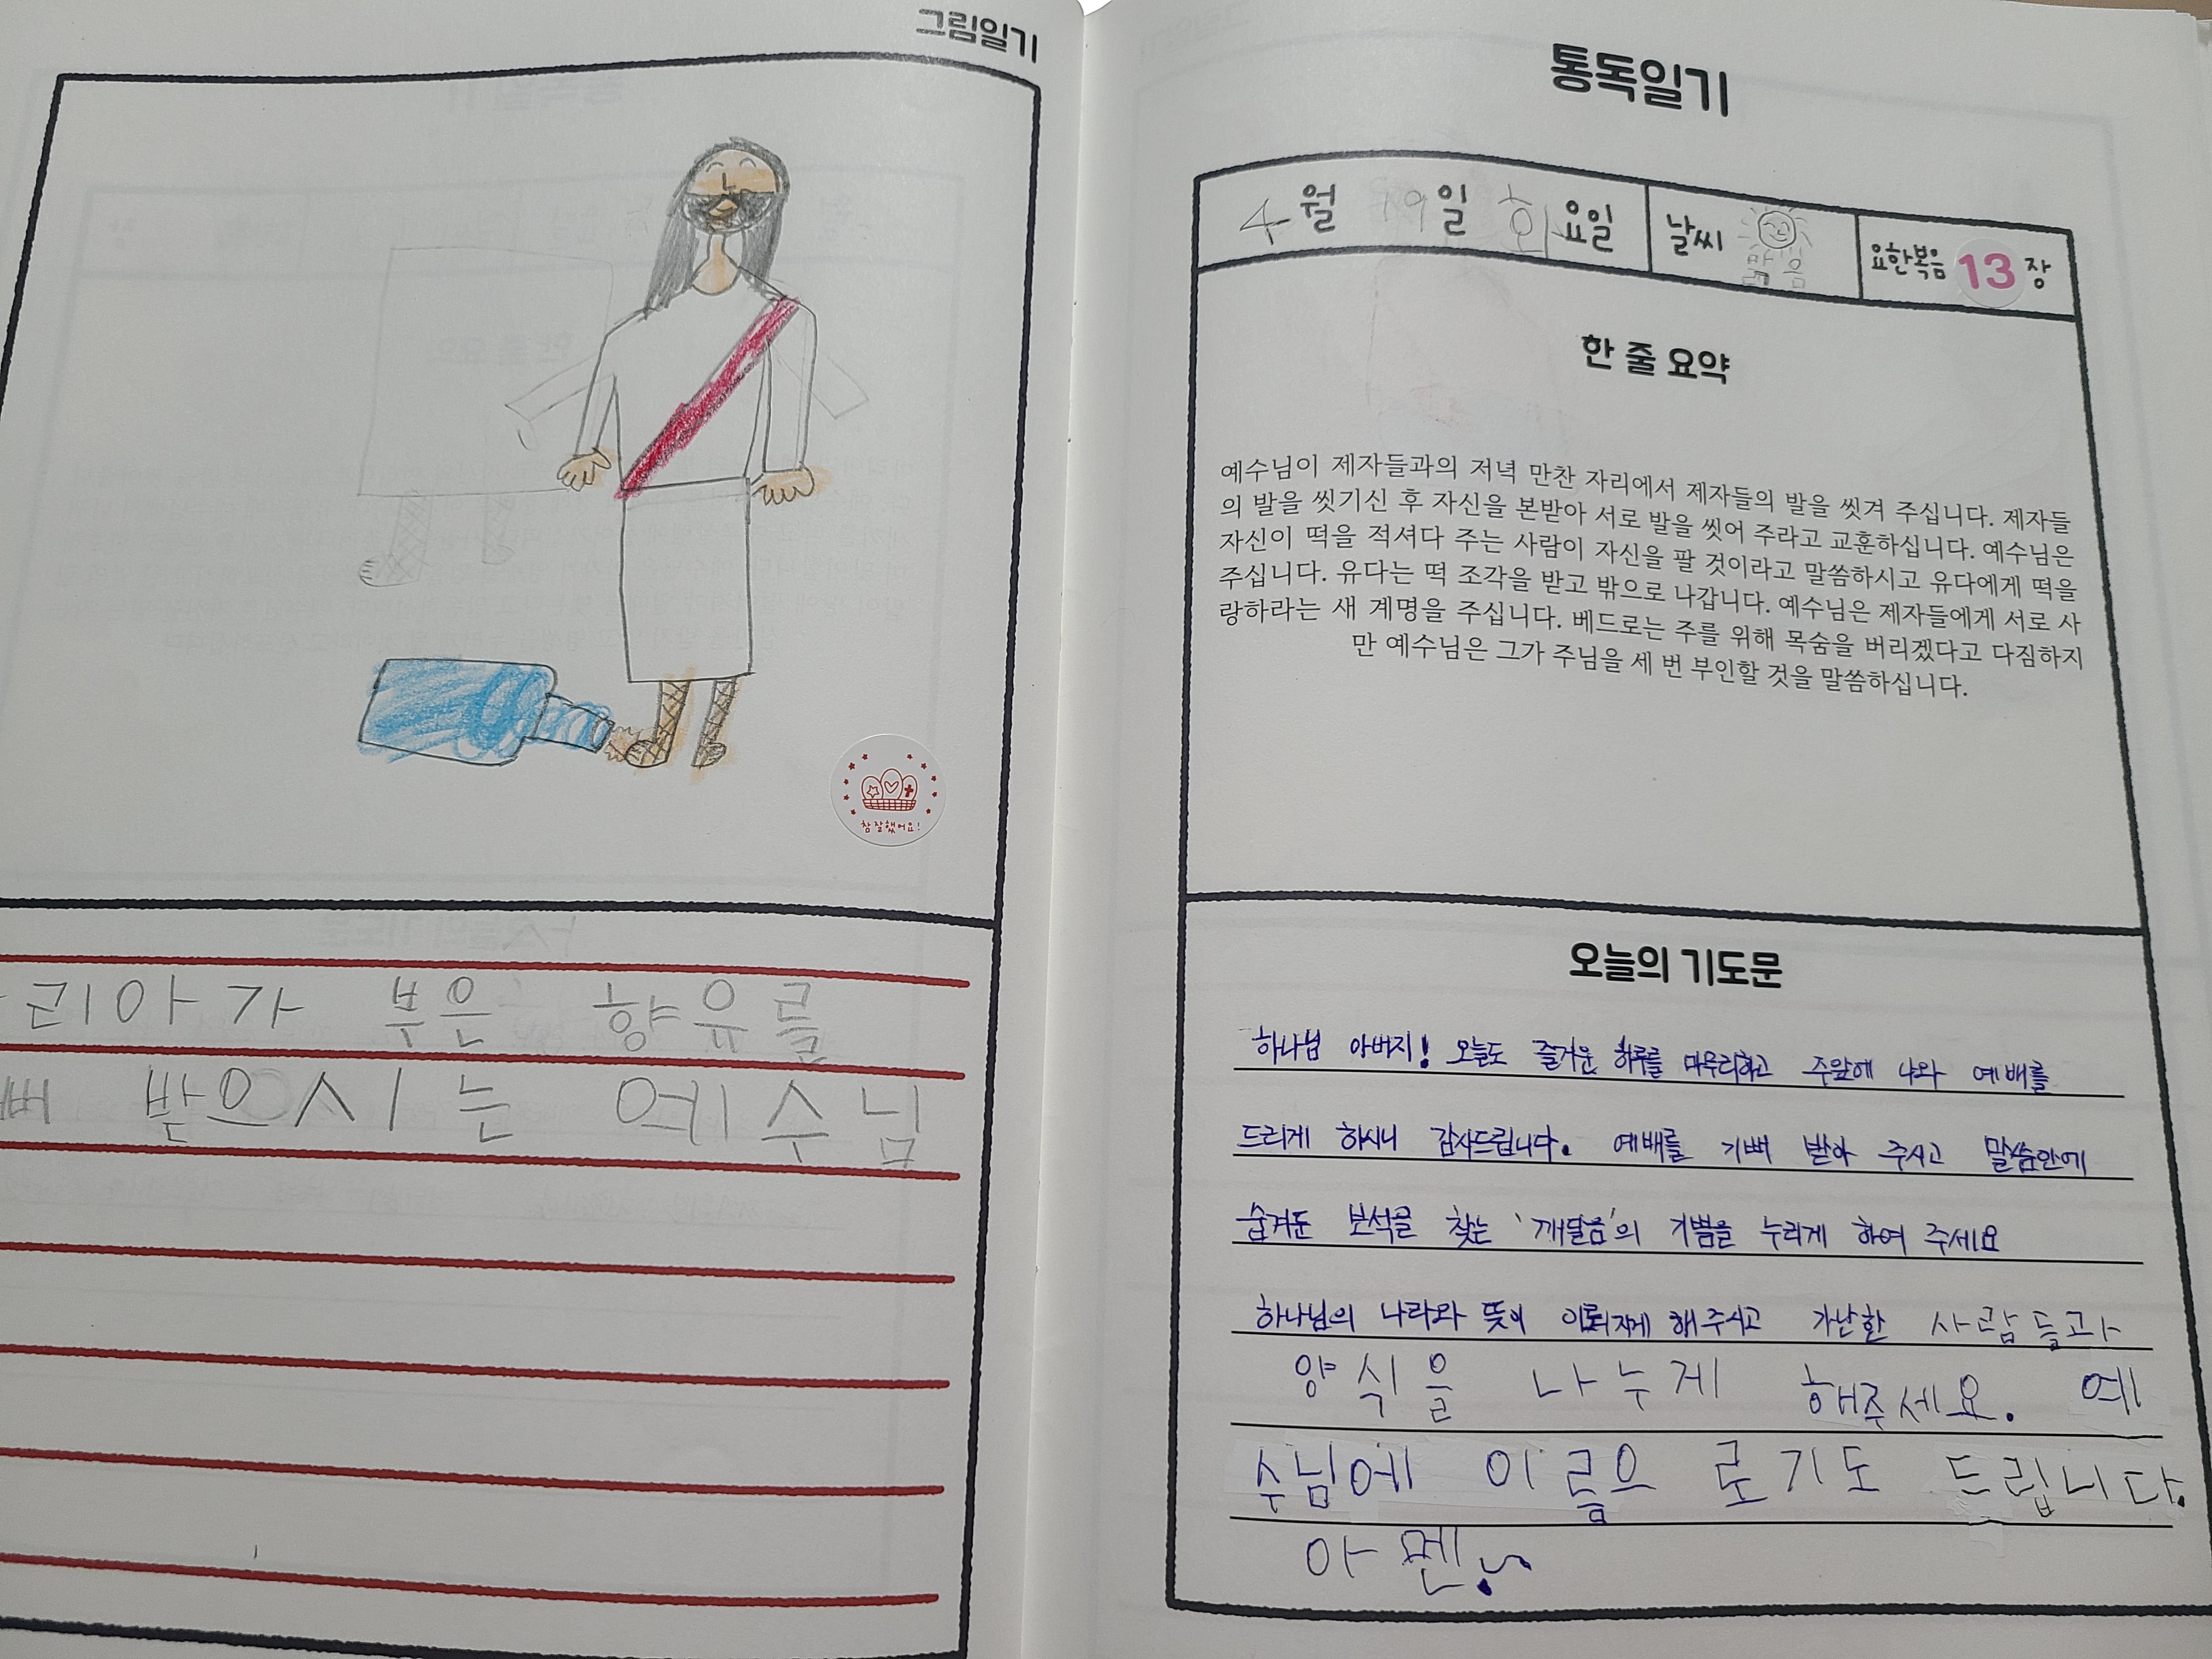 그림일기
참 잘했어요!
리아가 부은 향유를
뻐 받으시는 예수님
통독일기
4월 19일 화요일 날씨 맑음 요한복음 13장
한 줄 요약
예수님이 제자들과의 저녁 만찬 자리에서 제자들의 발을 씻겨 주십니다. 제자들
의 발을 씻기신 후 자신을 본받아 서로 발을 씻어 주라고 교훈하십니다. 예수님은
자신이 떡을 적셔다 주는 사람이 자신을 팔 것이라고 말씀하시고 유다에게 떡을
주십니다. 유다는 떡 조각을 받고 밖으로 나갑니다. 예수님은 제자들에게 서로 사
랑하라는 새 계명을 주십니다. 베드로는 주를 위해 목숨을 버리겠다고 다짐하지
만 예수님은 그가 주님을 세 번 부인할 것을 말씀하십니다.
오늘의 기도문
하나님 아버지! 오늘도 즐거운 하루를 마무리하고 주앞에 나와 예배를
드리게 하시니 감사드립니다. 예배를 기뻐 받아 주시고 말씀안에
숨겨둔 보석을 찾는 '깨달음'의 기쁨을 누리게 하여 주세요
하나님의 나라와 뜻이 이뤄지게 해주시고 가난한 사람들과
양식을 나누게 해주세요. 예
수님에 이름으로 기도 드립니다.
아멘!